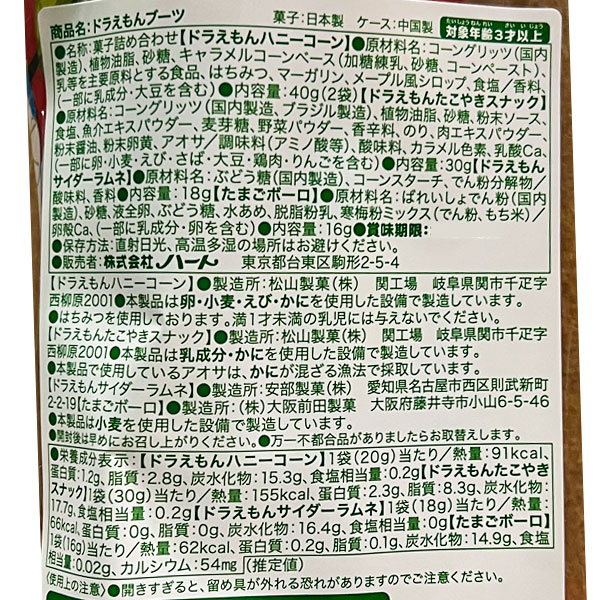 商品名:ドラえもんブーツ 菓子:日本製 ケース:中国製 対象年齢3才以上
●名称:菓子詰め合わせ【ドラえもんハニーコーン】●原材料名:コーングリッツ(国内
製造)、植物油脂、砂糖、キャラメルコーンベース(加糖練乳、砂糖、コーンペースト)、
乳等を主要原料とする食品、はちみつ、マーガリン、メープル風シロップ、食塩/香料、
(一部に乳成分・大豆を含む)●内容量:40g(2袋)【ドラえもんたこやきスナック】
●原材料名:コーングリッツ(国内製造、ブラジル製造)、植物油脂、砂糖、粉末ソース、
食塩、魚介エキスパウダー、麦芽糖、野菜パウダー、香辛料、のり、肉エキスパウダー、
粉末醤油、粉末卵黄、アオサ/調味料(アミノ酸等)、酸味料、カラメル色素、乳酸Ca、
(一部に卵・小麦・えび・さば・大豆・鶏肉・りんごを含む)●内容量:30g【ドラえもん
サイダーラムネ】●原材料名:ぶどう糖(国内製造)、コーンスターチ、でん粉分解物/
酸味料、香料●内容量:18g【たまごボーロ】●原材料名:ばれいしょでん粉(国内
製造)、砂糖、液全卵、ぶどう糖、水あめ、脱脂粉乳、寒梅粉ミックス(でん粉、もち米)/
卵殻Ca、(一部に乳成分・卵を含む)●内容量:16g●賞味期限:
●保存方法:直射日光、高温多湿の場所はお避けください。
●販売者:株式会社ハート 東京都台東区駒形2-5-4
【ドラえもんハニーコーン】●製造所:松山製菓(株) 関工場 岐阜県関市千疋字
西柳原2001●本製品は卵・小麦・えび・かにを使用した設備で製造しています。
●はちみつを使用しております。満1才未満の乳児には与えないでください。
【ドラえもんたこやきスナック】●製造所:松山製菓(株) 関工場 岐阜県関市千疋字
西柳原2001●本製品は乳成分・かにを使用した設備で製造しています。
●本製品で使用しているアオサは、かにが混ざる漁法で採取しています。
【ドラえもんサイダーラムネ】●製造所:安部製菓(株) 愛知県名古屋市西区則武新町
2-2-19【たまごボーロ】●製造所:(株)大阪前田製菓 大阪府藤井寺市小山6-5-46
●本製品は小麦を使用した設備で製造しています。
●開封後は早めにお召し上がりください。●万一不都合品がありましたらお取替えします。
●栄養成分表示:【ドラえもんハニーコーン】1袋(20g)当たり/熱量:91kcal、
蛋白質:1.2g、脂質:2.8g、炭水化物:15.3g、食塩相当量:0.2g【ドラえもんたこやき
スナック】1袋(30g)当たり/熱量:155kcal、蛋白質:2.3g、脂質:8.3g、炭水化物:
17.7g、食塩相当量:0.2g【ドラえもんサイダーラムネ】1袋(18g)当たり/熱量:
66kcal、蛋白質:0g、脂質:0g、炭水化物:16.4g、食塩相当量:0g【たまごボーロ】
1袋(16g)当たり/熱量:62kcal、蛋白質:0.2g、脂質:0.1g、炭水化物:14.9g、食塩
相当量:0.02g、カルシウム:54mg (推定値)
〈使用上の注意〉●開きすぎると、留め具が外れる恐れがありますのでご注意ください。